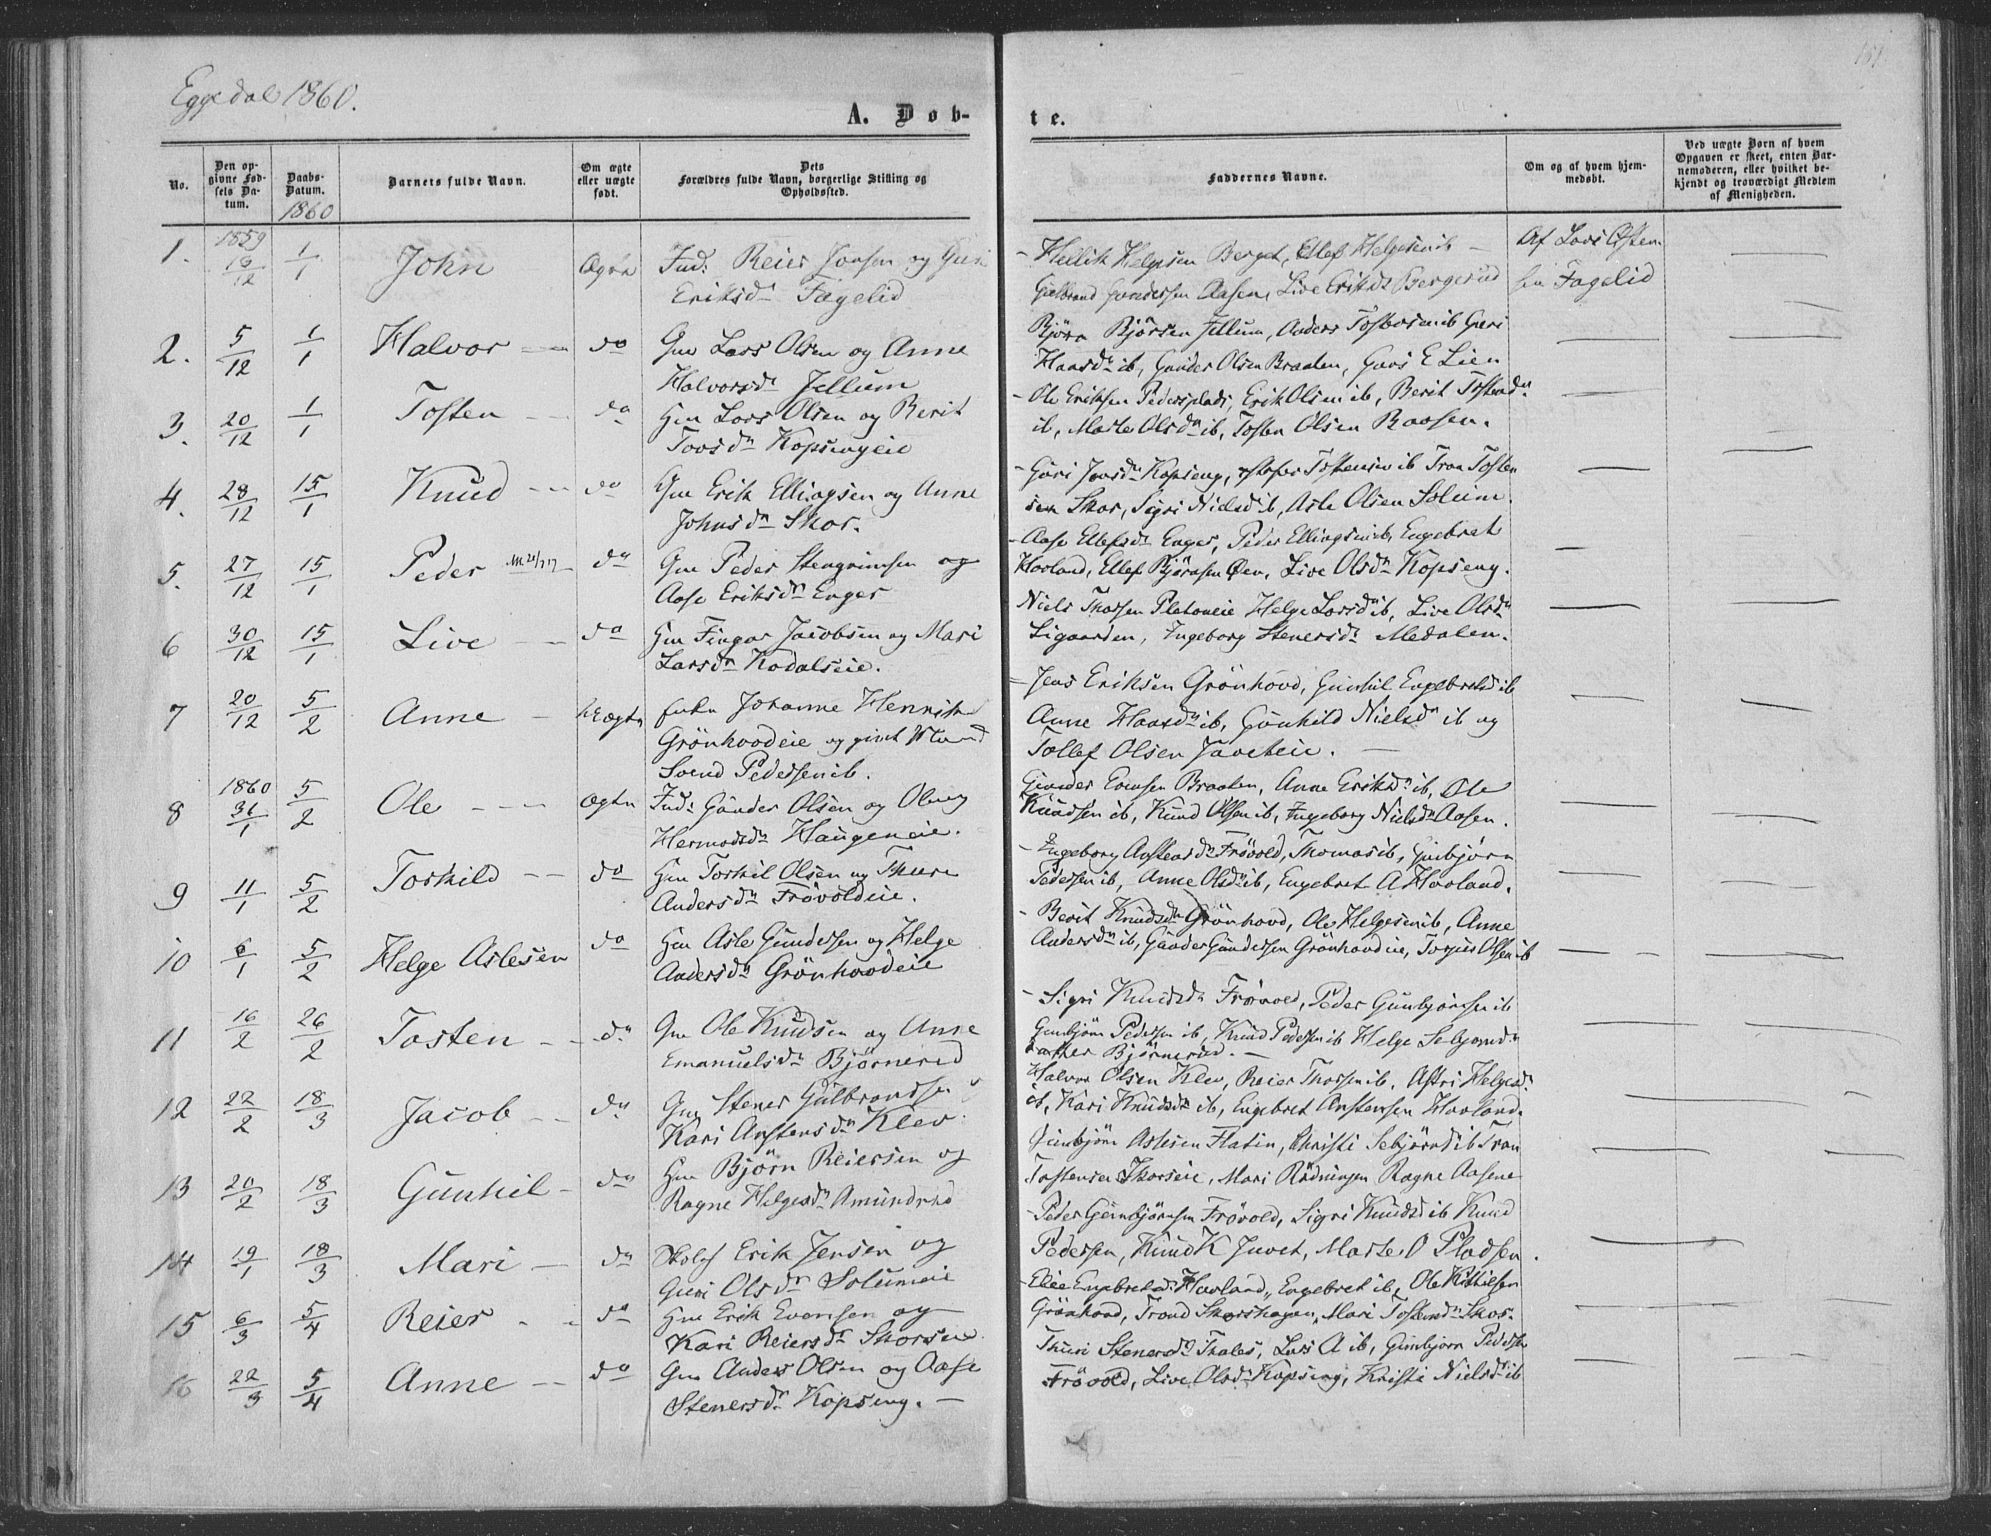 161
Eggedal 1860.
A. Døb-
te.
No.
Den op-
givne Fød-
sels Da-
tum.
Daabs-
Datum.
1860
Barnets fulde Navn.
Om ægte
eller uægte
født.
Dets
Forældres fulde Navn, borgerlige Stilling og
Opholdssted.
Faddernes Navne.
Om og af hvem hjem-
medøbt.
Ved uægte Børn af hvem
Opgaven er skeet, enten Bar-
nemoderen, eller hvilket be-
kjendt og troværdigt Medlem
af Menigheden.
1. 1859 13/12 1/1 John Ægte Ind: Reier Jonsen og Guri
Eriksdr Fagelid
Hellik Helgesen Berget, Ellef Helgesen ib
Gulbrand Gundersen Aasen, Live Eriksdr Bergerud
Af Lars Østen
sen Fagelid
2. 5/12 1/1 Halvor do Gm Lars Olsen og Anne
Halvorsdr Jellum
Bjørn Bjørsen Jellum, Anders Tostensen ib Guri
Haasdr ib, Gunder Olsen Braaten, Guri E Lien
3. 20/12 1/1 Tosten do Hm Lars Olsen og Berit
Toosdr Kopsengeie
Ole Eriksen Pedersplads, Erik Olsen ib, Berit Tostensdn
ib, Marte Olsdn ib, Tosten Olsen Baasen.
4. 28/12 15/1 Knud do Gm Erik Ellingsen og Anne
Johnsdn Skor.
Guri Joosdn Kopseng, Tostensen ib Tron Tosten
sen Skor, Sigri Nielsd ib, Asle Olsen Solum.
5. 27/12 15/1 Peder do Gm Peder Stengrimsen og
Aase Eriksdn Enger
Aase Ellefsdr Enger, Peder Ellingsen ib, Engebret
Hovland, Ellef Bjørnsen Øen, Live Olsdn Kopseng.
6 30/12 15/1 Live do Hm Fingar Jacobsen og Mari
Larsdn Kodalseie.
Niels Thorsen Platoneie Helge Larsdn ib, Live Olsdn
Ligaarden, Ingeborg Stenersdr Medalen.
7 20/12 5/2 Anne Uægte Johanne Henrik
Grønhovdeie og givt Mand
Svend Pedersen ib.
Jens Eriksen Grønhovd, Gunhil Engebretsd ib
Anne Haasdn ib, Gunhild Nielsdn ib og
Tollef Olsen Juveteie.
8 1860 31/1 5/2 Ole Ægte Ind: Gunder Olsen og Oleug
Hermodsdr Haugeneie.
Gunder Evensen Braaten, Anne Eriksdn ib, Ole
Knudsen ib, Knud Olsen ib, Ingeborg Nielsdn Aasen.
9 11/1 5/2 Torkild do Hm Torkil Olsen og Thure
Andersdn Frøvoldeie.
Ingeborg Anstensdn Frøvold, Thomas ib, Gunbjørn
Pedersen ib, Anne Olsdn ib, Engebret A Hovland.
10 6/1 5/2 Helge Aslesen do Hm Asle Gundersen og Helge
Andersdn Grønhovdeie
Berit Knudsdn Grønhovd, Ole Helgesen ib, Anne
Andersdn ib, Gunder Gundersen Grønhovdeie, Torjus Olsen ib
11 16/2 26/2 Tosten do Gm Ole Knudsen og Anne
Emanuelsdr Bjørnerud
Sigri Knudsdn Frøvold, Peder Gunbjørnsen ib
Gunbjørn Pedersen ib, Knud Pedersen ib Helge Sebjørnsdn
Bjørnerud.
12 22/2 18/3 Jacob do Gm Stener Gulbrandsen
Kari Anstensdn Klev
Halvor Olsen Klev, Reier Thorsen ib, Astri Helgesd.
ib, Kari Knudsdn ib, Engebret Anstensen Hovland.
13 20/2 18/3 Gunhil do Hm Bjørn Reiersen og
Ragne Helgesdn Amundrud
Gunbjørn Aslesen Flatin, Christi Sebjørnsd ib Tron
Tostensen Skorseie, Mari Rudningen Ragne Aasene
14 19/1 18/3 Mari do Skolel Erik Jensen og
Guri Olsdr Solumeie
Peder Gunbjørnsen Frøvold, Sigri Knudsd ib Knud
Pedersen, Knud K Juvet, Marte O Pladsen.
15 6/3 5/4 Reier do Hm Erik Evensen og
Kari Reiersdr Skorseie
Engebretsd Hovland, Engebret ib, Ole Kittilsen
Grønhovd, Trond Skorshagen, Mari Tostensdn Skor.
16 22/3 5/4 Anne do Gm Anders Olsen og Aase
Stenersdr Kopseng.
Thuri Stenersdr Thales, Lars A ib, Gunbjørn Peders
Frøvold, Live Olsdn Kopseng, Kristi Nielsd ib